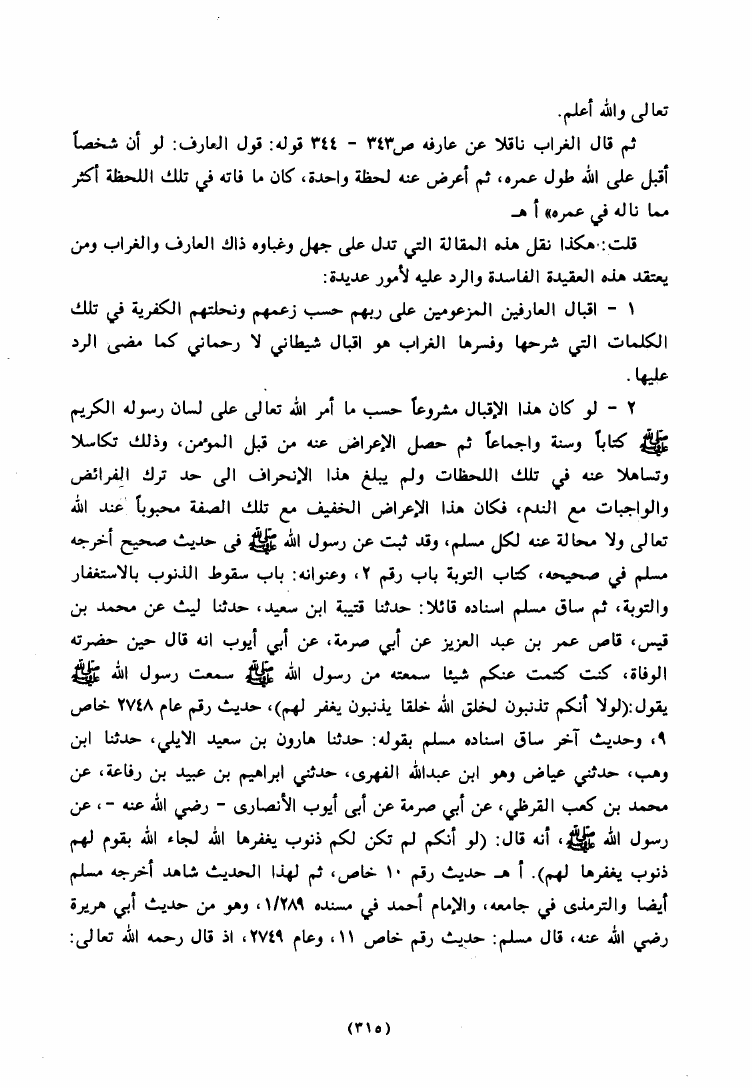 تعالى والله أعلم.
ثم قال الغراب ناقلا عن عارفه ص٣٤٣ - ٣٤٤ قوله: قول العارف: لو أن شخصاً
أقبل على الله طول عمره، ثم أعرض عنه لحظة واحدة، كان ما فاته في تلك اللحظة أكثر
مما ناله في عمره» أ هـ
قلت: هكذا نقل هذه المقالة التي تدل على جهل وغباوه ذاك العارف والغراب ومن
يعتقد هذه العقيدة الفاسدة والرد عليه لأمور عديدة:
١ - اقبال العارفين المزعومين على ربهم حسب زعمهم ونحلتهم الكفرية في تلك
الكلمات التي شرحها وفسرها الغراب هو اقبال شيطاني لا رحماني كما مضى الرد
عليها.
٢ - لو كان هذا الإقبال مشروعاً حسب ما أمر الله تعالى على لسان رسوله الكريم
ﷺ كتاباً وسنة واجماعاً ثم حصل الإعراض عنه من قبل المؤمن، وذلك تكاسلا
وتساهلا عنه في تلك اللحظات ولم يبلغ هذا الإنحراف الى حد ترك الفرائض
والواجبات مع الندم، فكان هذا الإعراض الخفيف مع تلك الصفة محبوباً عند الله
تعالى ولا محالة عنه لكل مسلم، وقد ثبت عن رسول الله ﷺ فى حديث صحيح أخرجه
مسلم في صحيحه، كتاب التوبة باب رقم ٢، وعنوانه: باب سقوط الذنوب بالاستغفار
والتوبة، ثم ساق مسلم اسناده قائلا: حدثنا قتيبة ابن سعيد، حدثنا ليث عن محمد بن
قيس، قاص عمر بن عبد العزيز عن أبي صرمة، عن أبي أيوب انه قال حين حضرته
الوفاة، كنت كتمت عنكم شيئا سمعته من رسول الله ﷺ سمعت رسول الله ﷺ
يقول:(لولا أنكم تذنبون لخلق الله خلقا يذنبون يغفر لهم)، حديث رقم عام ٢٧٤٨ خاص
٩، وحديث آخر ساق اسناده مسلم بقوله: حدثنا هارون بن سعيد الايلي، حدثنا ابن
وهب، حدثني عياض وهو ابن عبدالله الفهرى، حدثني ابراهيم بن عبيد بن رفاعة، عن
محمد بن كعب القرظي، عن أبي صرمة عن أبى أيوب الأنصارى - رضي الله عنه -، عن
رسول الله ﷺ، أنه قال: (لو أنكم لم تكن لكم ذنوب يغفرها الله لجاء الله بقوم لهم
ذنوب يغفرها لهم). أ هـ حديث رقم ١٠ خاص، ثم لهذا الحديث شاهد أخرجه مسلم
أيضا والترمذى في جامعه، والإمام أحمد في مسنده ١/٢٨٩، وهو من حديث أبي هريرة
رضي الله عنه، قال مسلم: حديث رقم خاص ١١، وعام ٢٧٤٩، اذ قال رحمه الله تعالى:
(٣١٥)